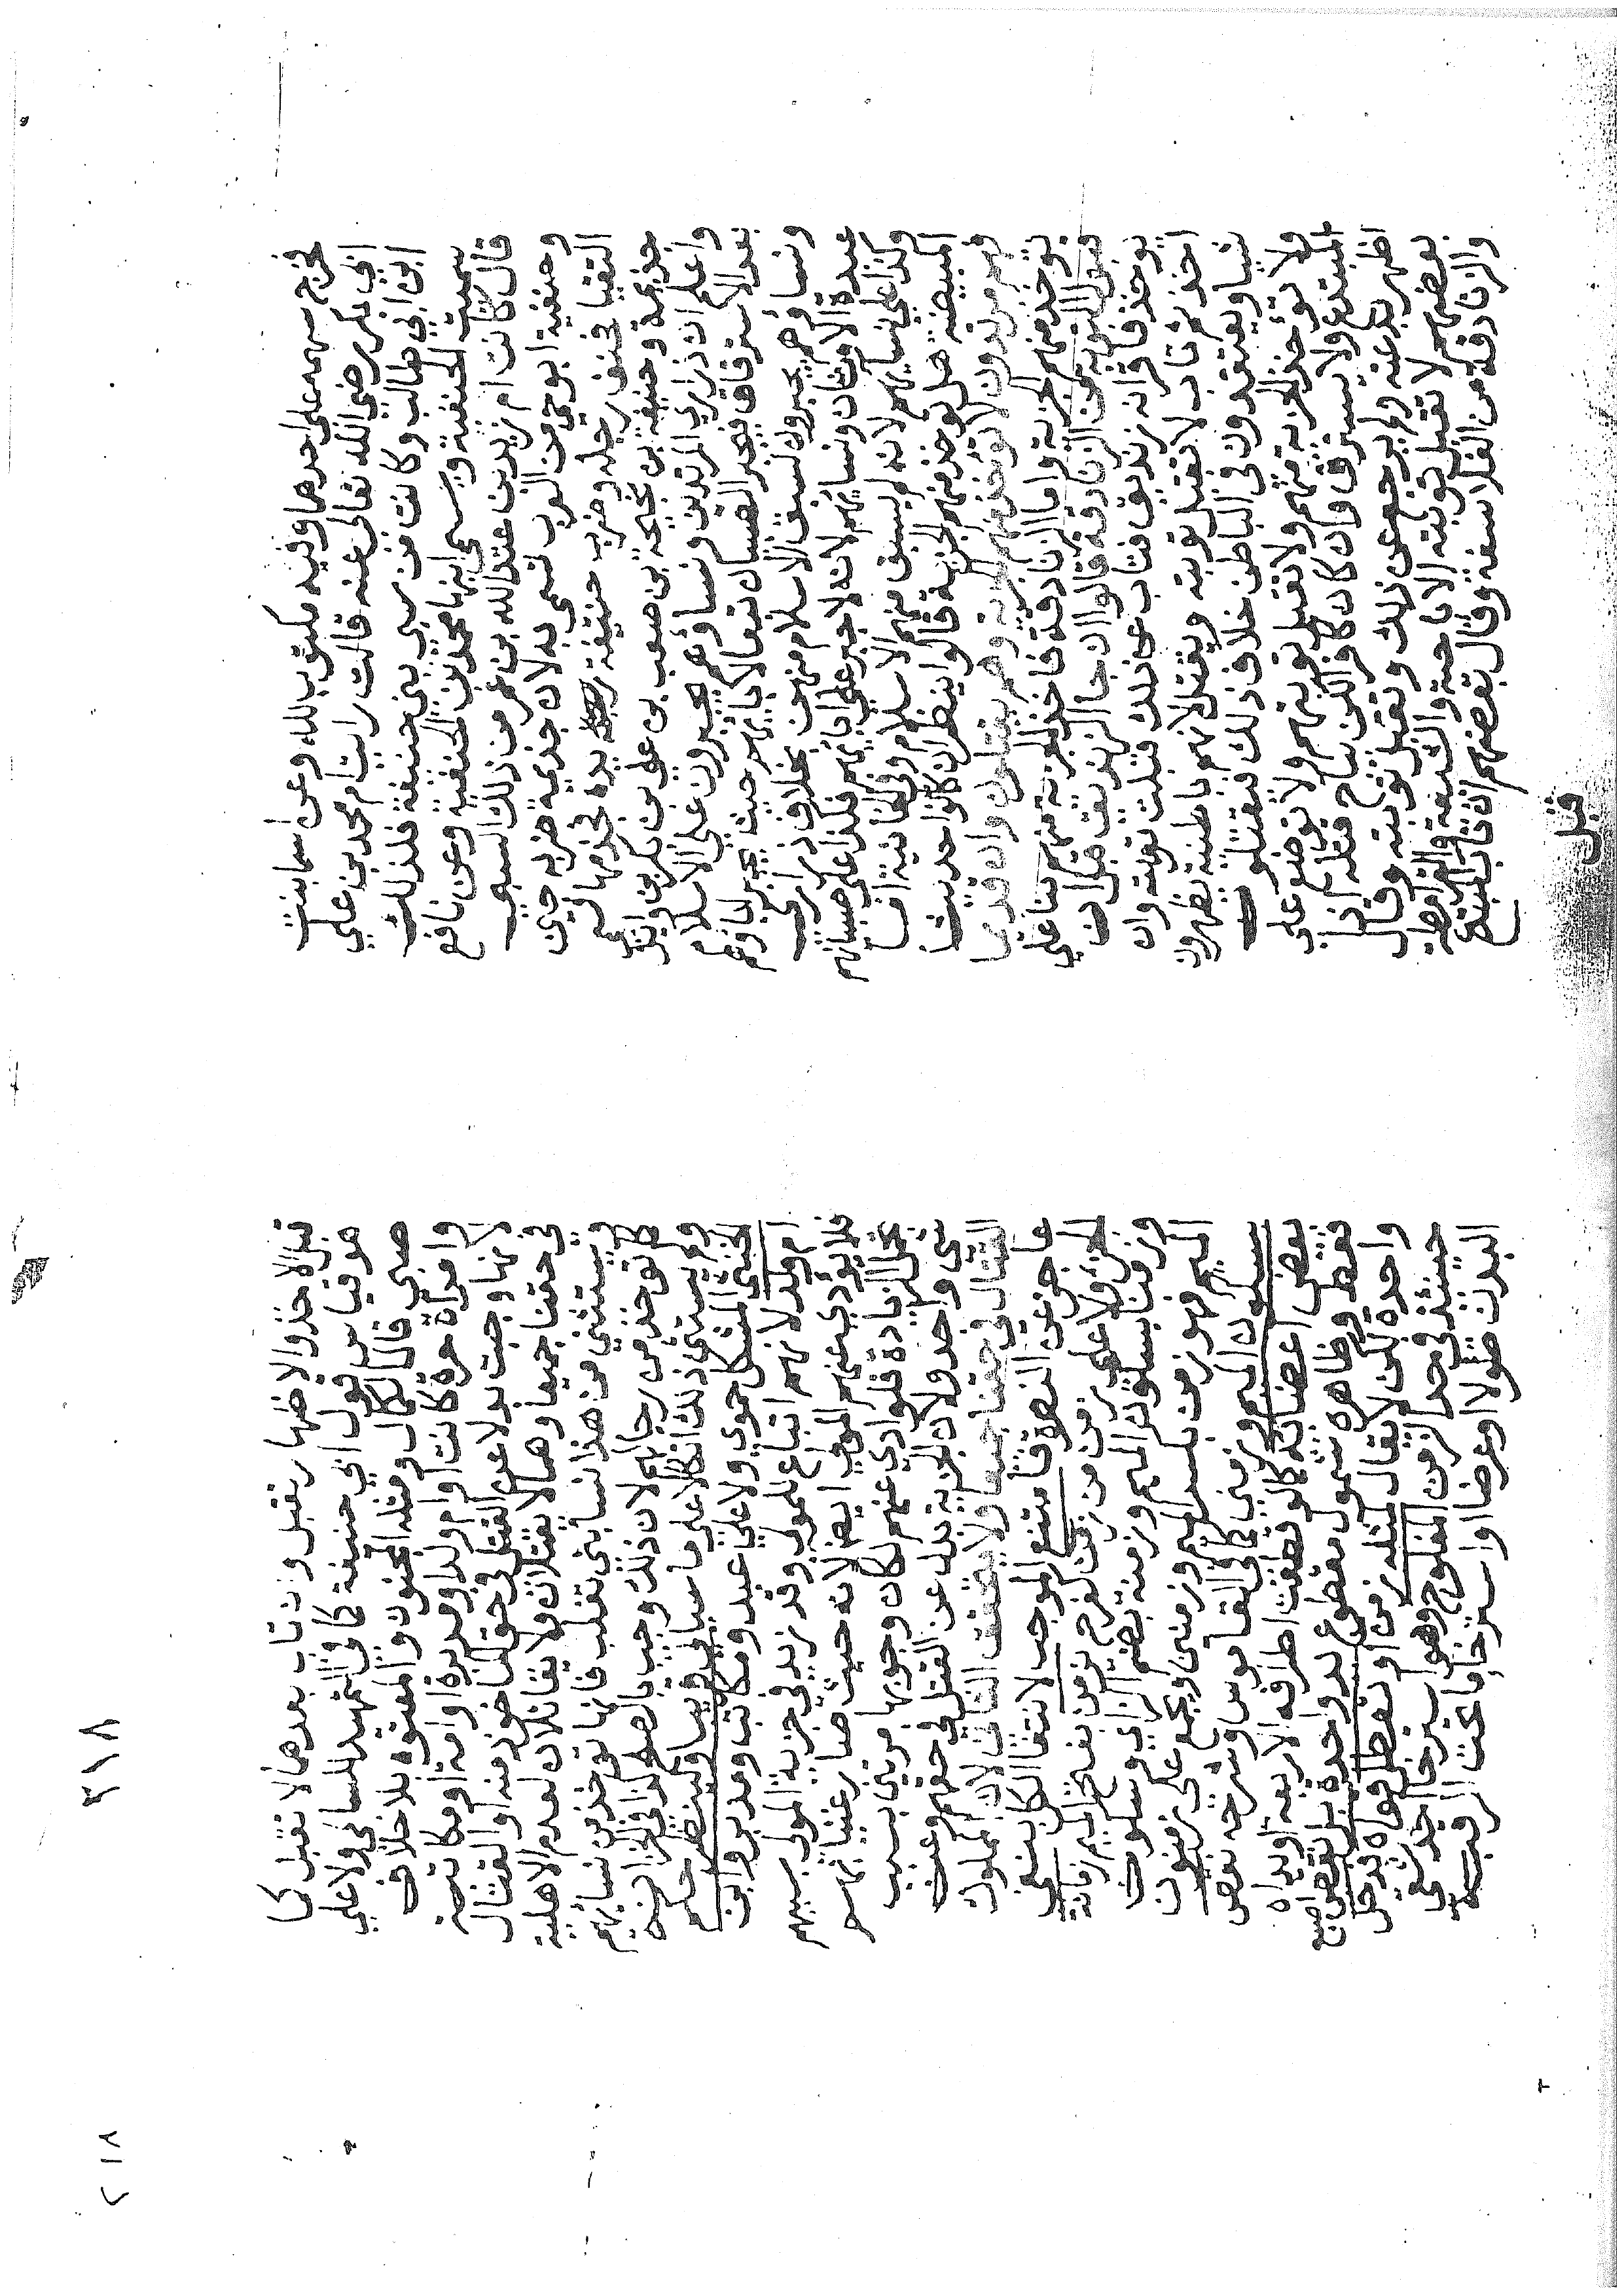 فخرج سهمه على احدهما وفيه مكتوب لله وعن اسما بنت
ابي بكر رضي الله تعالى عنه قالت رايت ام محمد بن علي
ابن ابي طالب وكانت من سبي بني حنيفة فلذلك
سميت الحنفية ويسمى ابنها محمد بن الحنفية وعن نافع
قال كانت ام زيد بن عبد الله بن عمر من ذلك السبي
وحنيفة ابو حي من العرب تسمى به لان جذيمة ضربه حين
التقيا فحنف رجله وضرب حنيفة يده فجذمها فسمي
جذيمة وحنيفة بن بن صعب بن علي بن بكر بن وائل
واعلم ان ذراري المرتدين ونساؤهم يجبرون على الاسلام
بعد الاسترقاق فيجبر الصبيان تبعا لابايهم حيث يجبر اباوهم
ونساؤهم يجبرون لسبق الاسلام منهن بخلاف ذراري
عبدة الاوثان ونسايهم لانه لا جبر على ابايهم فكذا على صبيانهم
وكذا على نسايهم لانه لم يسبق منهم الاسلام وفي الخانية اما
المبيضة هل توخذ منهم الجزية قالوا ينظر ان كانوا حديثا
فهم مرتدون لا تؤخذ منهم الجزية وهم يقتلون وان قديما
توخذ منهم الجزية واما الزنادقة فاخذ الجزية منهم بنا على
قبول التوبة من الزنادقة قالوا ان جا الزنديق قبل ان
يوخذ فاقر انه زنديق فتاب عن ذلك قبلت توبته وان
اخذ ثم تاب لا تقبل توبته ويقتل لانهم باطنية يظهرون
شيا ويعتقدون في الباطن خلاف ذلك فيقتلون
ولا تؤخذ الجزية منهم ولا تقبل توبتهم ولا توضع على
المبتدع ولا يسترق وان كان كافرا لكن يباح قتله اذا
اظهر بدعته ولم يرجع عن ذلك وتقبل توبته وقال
بعضهم لا تقبل توبة الاباحية والشيعة والقرامطة
والزنادقة من الفلاسفة وقال بعضهم ان تاب المبتدع
قبل
٣١٨
٢١٨
قبل الاخذ والاظهار تقبل وان تاب بعدهما لا تقبل كما
هو قياس قول ابي حنيفة كما في التمهيد للسالمي ولا على
صبي قال الكمال ومثله المجنون والمعتوه بلا خلاف
وامراة حرة كانت او ام ولد او مدبرة او امة او مكاتبة
لانها وجبت بدلا عن القتل في حق الماخوذ منه او القتال
في حقنا جميعا وهما لا يقتلان ولا يقاتلان لعدم الاهلية
ويستثنى من هذا نسا بني تغلب فانها توخذ من نسايهم
كما توخذ من رجالهم لان ذلك وجب بالصلح كذا في الخزانة
ولم يستثن ذلك اتكالا على ما سياتي قريبا ولينظر حكم
الخنثى المشكل حموي ولا على عبد ومكاتب ومدبر وابن
ام ولد لانهم اتباع للمولى وقد زيد في جزية المولى بسببهم
فلا يؤدي عنهم المولى ايضا لانه حيث صار غنيا بهم
تحمل الزيادة فلو ادي عنهم لكان وجوبها مرتين بسبب
شي واحد ولان الجزية بدل عن القتل في حقهم وعن
القتال في حقنا جميعا ولا يتحقق الثاني لان المملوك
عاجز عن النصرة فامتنع الموجب لانتفا الكل بنفي
الجزء ولا على زمن من زمن يزمن بفتح الميم زمانة
وزمنا بسكون الميم وزمنة بضم الزاي وسكون
الميم فهو زمن بكسر الميم وزمين ويجمع على زمنون
بسكون الميم وزمنى كما في القاموس وشرحه بعض
نقص اعضائه كالو قطعت اطرافه الاربعة او يداه
فقط وظاهره شمول مقطوع يد واحدة بل نقص اصبع
واحدة لكن لا يقال لمثله زمن او تعطل قواه فدخل
حينئذ في حد الزمن المفلوج وهو استرخا احد شقي
البدن طولا او عرضا او استرخا ما تحت الرقبة